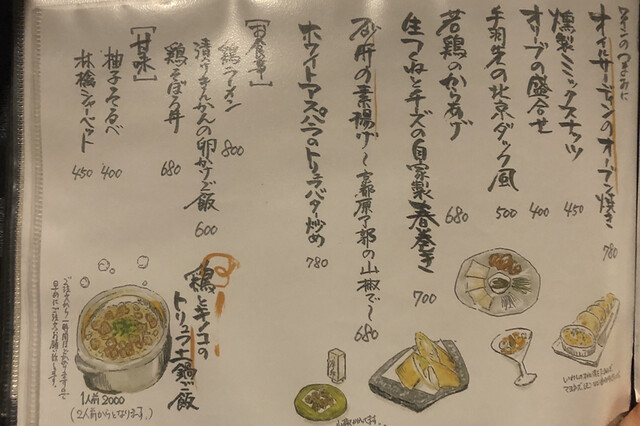 ワインのつまみに
オイルサーディンのオーブン焼き 780
燻製ミックスナッツ 450
オリーブの盛合せ 400
手羽先の北京ダック風 500
若鶏のからあげ 680
生つくねとチーズの自家製春巻き 700
砂肝の素揚げ〜京都原了郭の山椒で〜 680
ホワイトアスパラのトリュフバター炒め 780
【お食事】
鶏ラーメン 800
漬けきんかんの卵かけご飯 600
鶏そぼろ丼 680
【甘味】
柚子そるべ 400
林檎シャーベット 450
鶏とキノコの
トリュフ土鍋ご飯
1人前 2000
(2人前からとなります。)
ご注文から一時間ほどかかりますので
早めにご注文お願い致します。